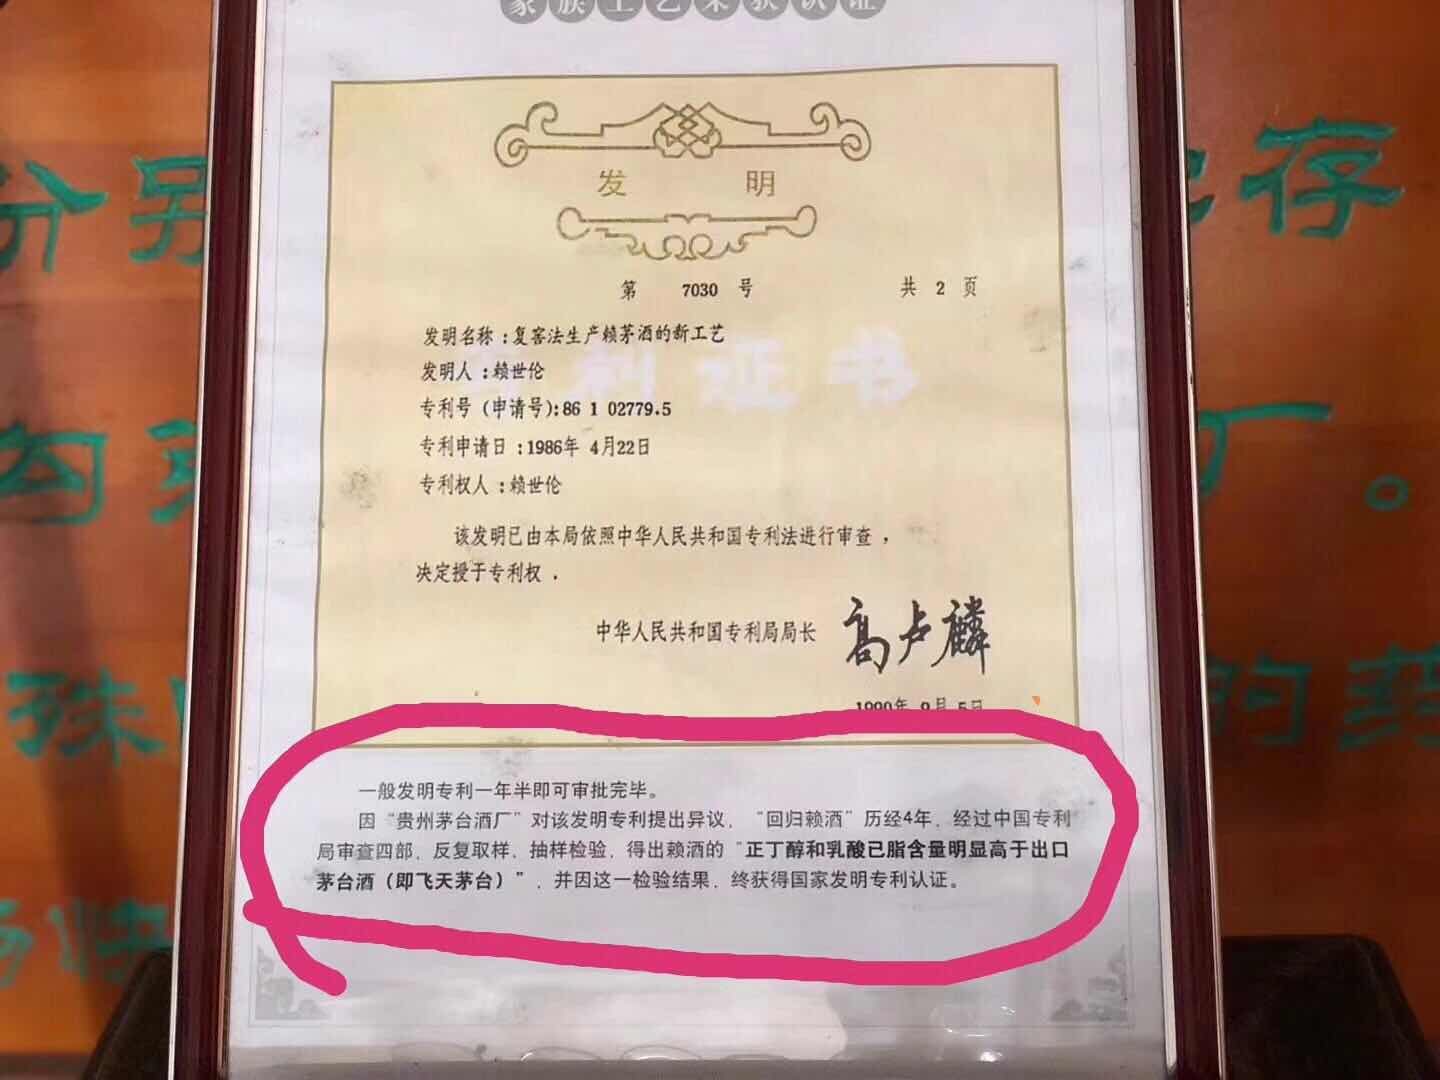 家族工艺荣获认证
发明
第 7030 号 共 2 页
发明名称:复窖法生产赖茅酒的新工艺
发明人:赖世伦
利证书
专利号(申请号):86 1 02779.5
专利申请日:1986年 4月22日
专利权人:赖世伦
该发明已由本局依照中华人民共和国专利法进行审查,
决定授于专利权.
中华人民共和国专利局局长 高卢麟
1990年 9月 5日
一般发明专利一年半即可审批完毕。
因“贵州茅台酒厂”对该发明专利提出异议,“回归赖酒”历经4年,经过中国专利
局审查四部,反复取样,抽样检验,得出赖酒的“正丁醇和乳酸已脂含量明显高于出口
茅台酒(即飞天茅台)”,并因这一检验结果,终获得国家发明专利认证。
份另
存
勾
厂。
殊
的药